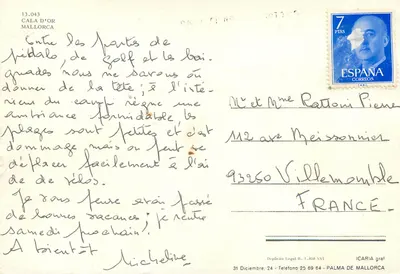 13.043
CALA D'OR
MALLORCA
Entre les parties de
pédalo, de golf et les bai-
gnades nous ne savons où
donner de la tête; à l'inté-
rieur du camp règne une
ambiance formidable, les
plages sont petites et c'est
dommage mais on peut se
déplacer facilement à l'ai
de de vélos.
Je vous pense avoir passé
de bonnes vacances; je rentre
samedi prochain.
A bientôt
Micheline
7
PTAS
ESPAÑA
CORREOS
Mr et Mme Rattoin Pierre
112 ave Meissonnier
93250 Villemomble
FRANCE.
ICARIA graf
31 Diciembre. 24 - Teléfono 25 69 64 - PALMA DE MALLORCA